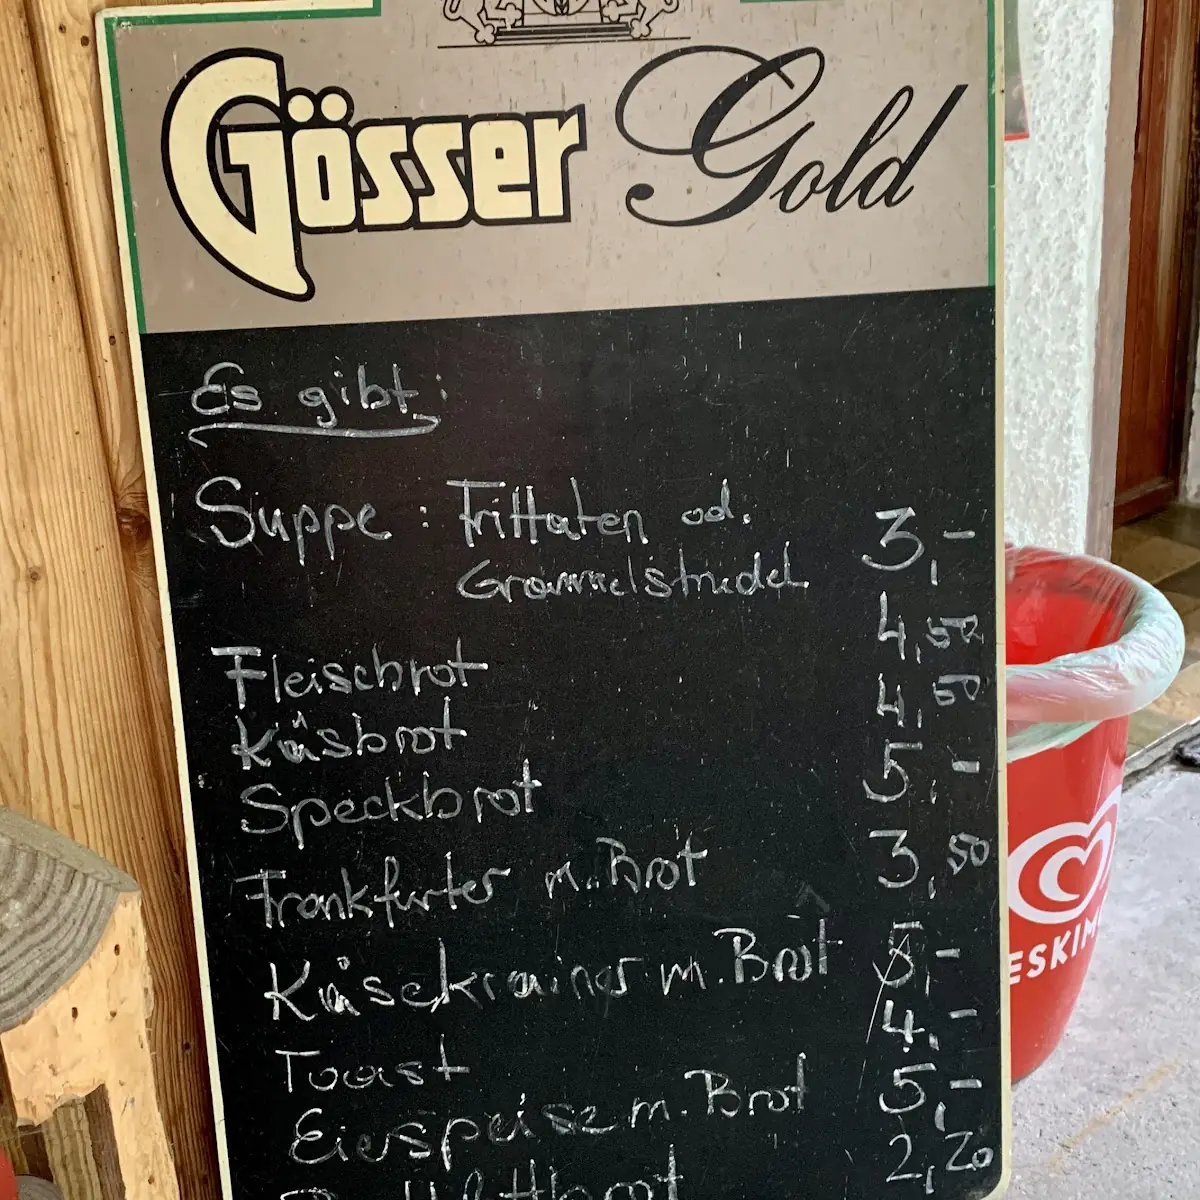 Gösser Gold
Es gibt:
Suppe: Frittaten od. 3,-
Grammelstrudel
Fleischbrot 4,50
Käsbrot 4,50
Speckbrot 5,-
Frankfurter m. Brot 3,50
Käsekrainer m. Brot 5,-
Toast 4,-
Eierspeise m. Brot 5,-
2,20
ESKIM